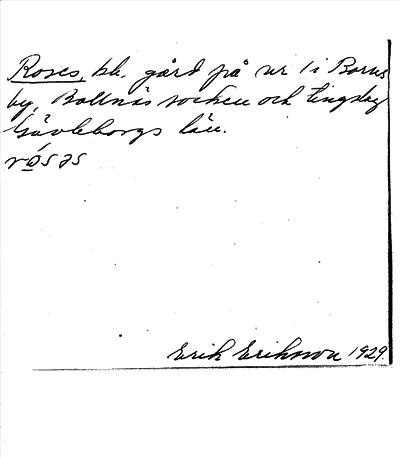 Roses, bb. gård på nr 1 i Borns
by, Bollnäs socken och tingslag
Gävleborgs län.
rósəs
Erik Eriksson 1929.